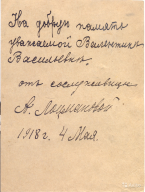 На добрую память
уважаемой Валентине
Васильевне
отъ сослуживицы
А.
1918 г. 4 Мая.